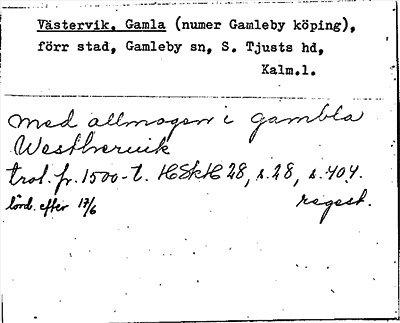 Västervik, Gamla (numer Gamleby köping),
förr stad, Gamleby sn, S. Tjusts hd,
Kalm.l.
med allmogen i gambla
Westhervik
trol. fr. 1500-t. HSkH 28, s.28, s.404.
lörd. efter 17/6 regest.